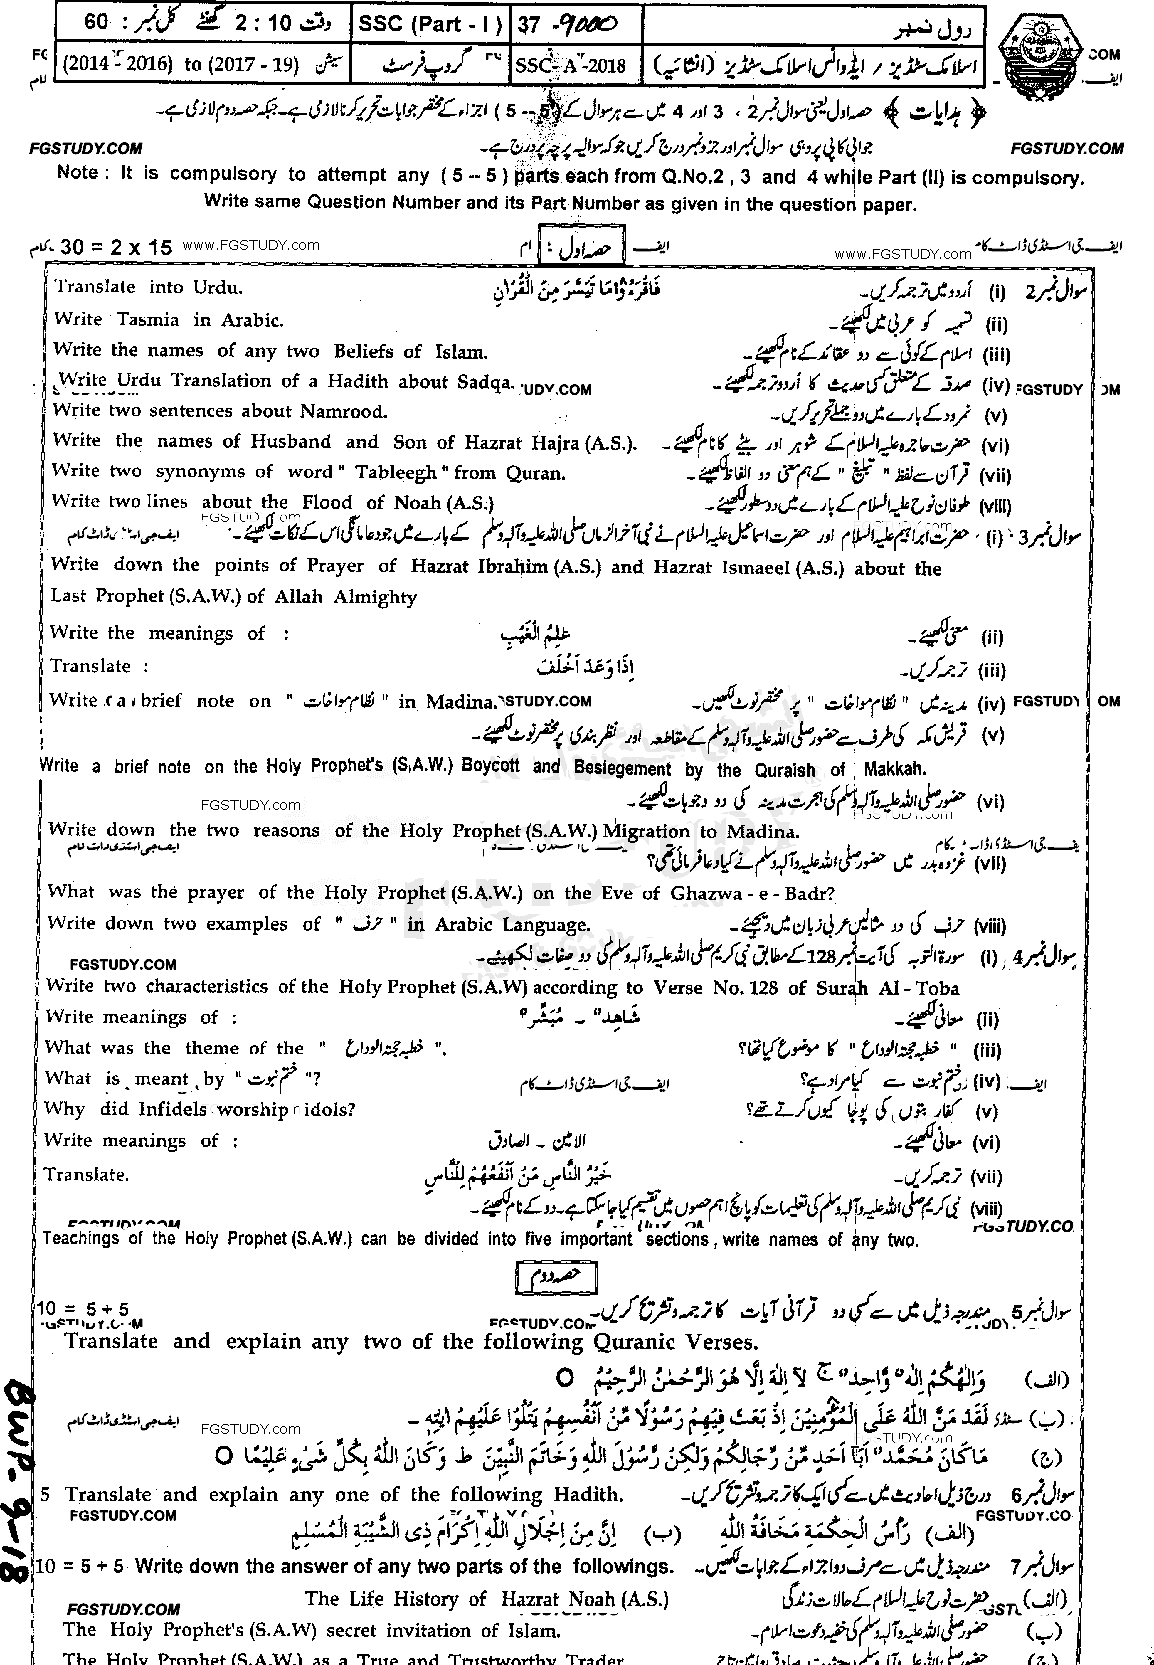 رول نمبر 37 -9000 SSC (Part - I) وقت 2 : 10 گھنٹے کل نمبر : 60
اسلامک سٹڈیز / ایڈوانس اسلامک سٹڈیز (انشائیہ) SSC-A-2018 گروپ فرسٹ سیشن (2014 - 2016) to (2017 - 19)
﴿ ہدایات ﴾ حصہ اول یعنی سوال نمبر 2 ، 3 اور 4 میں سے ہر سوال کے (5 -- 5) اجزاء کے مختصر جوابات تحریر کرنا لازمی ہے۔ جبکہ حصہ دوم لازمی ہے۔
FGSTUDY.COM جوابی کاپی پر وہی سوال نمبر اور جزو نمبر درج کریں جو کہ سوالیہ پرچہ پر درج ہے۔ FGSTUDY.COM
Note : It is compulsory to attempt any ( 5 -- 5 ) parts each from Q.No.2 , 3 and 4 while Part (II) is compulsory.
Write same Question Number and its Part Number as given in the question paper.
30 = 2 x 15 www.FGSTUDY.com حصہ اول : www.FGSTUDY.com ایف جی اسٹڈی ڈاٹ کام
Translate into Urdu. فَاقْرَءُوْا مَا تَيَسَّرَ مِنَ الْقُرْاٰنِ سوال نمبر 2 (i) اُردو میں ترجمہ کریں۔
Write Tasmia in Arabic. (ii) تسمیہ کو عربی میں لکھیئے۔
Write the names of any two Beliefs of Islam. (iii) اسلام کے کوئی سے دو عقائد کے نام لکھیئے۔
Write Urdu Translation of a Hadith about Sadqa. (iv) صدقہ کے متعلق کسی حدیث کا اُردو ترجمہ لکھیئے۔ FGSTUDY
Write two sentences about Namrood. (v) نمرود کے بارے میں دو جملے تحریر کریں۔
Write the names of Husband and Son of Hazrat Hajra (A.S.). (vi) حضرت حاجرہ علیہ السلام کے شوہر اور بیٹے کا نام لکھیئے۔
Write two synonyms of word " Tableegh " from Quran. (vii) قرآن سے لفظ " تبلیغ " کے ہم معنی دو الفاظ لکھیئے۔
Write two lines about the Flood of Noah (A.S.) (viii) طوفان نوح علیہ السلام کے بارے میں دو سطور لکھیئے۔
سوال نمبر 3 (i) حضرت ابراہیم علیہ السلام اور حضرت اسماعیل علیہ السلام نے نبی آخر الزماں صلی اللہ علیہ وآلہ وسلم کے بارے میں جو دعا مانگی اس کے نکات لکھیئے۔
Write down the points of Prayer of Hazrat Ibrahim (A.S.) and Hazrat Ismaeel (A.S.) about the
Last Prophet (S.A.W.) of Allah Almighty
Write the meanings of : عٰلِمُ الْغَيْبِ (ii) معنی لکھیئے۔
Translate : اِذَا وَعَدَ اَخْلَفَ (iii) ترجمہ کریں۔
Write a brief note on " نظام مواخات " in Madina. (iv) مدینہ میں " نظام مواخات " پر مختصر نوٹ لکھیں۔
(v) قریش مکہ کی طرف سے حضور صلی اللہ علیہ وآلہ وسلم کے مقاطعہ اور نظر بندی پر مختصر نوٹ لکھیئے۔
Write a brief note on the Holy Prophet's (S.A.W.) Boycott and Besiegement by the Quraish of Makkah.
FGSTUDY.com (vi) حضور صلی اللہ علیہ وآلہ وسلم کی ہجرت مدینہ کی دو وجوہات لکھیئے۔
Write down the two reasons of the Holy Prophet (S.A.W.) Migration to Madina.
(vii) غزوہ بدر میں حضور صلی اللہ علیہ وآلہ وسلم نے کیا دعا فرمائی تھی؟
What was the prayer of the Holy Prophet (S.A.W.) on the Eve of Ghazwa - e - Badr?
Write down two examples of " حرف " in Arabic Language. (viii) حرف کی دو مثالیں عربی زبان میں دیجیئے۔
FGSTUDY.COM سوال نمبر 4 (i) سورۃ التوبہ کی آیت نمبر 128 کے مطابق نبی کریم صلی اللہ علیہ وآلہ وسلم کی دو صفات لکھیئے۔
Write two characteristics of the Holy Prophet (S.A.W) according to Verse No. 128 of Surah Al - Toba
Write meanings of : شَاهِد" ۔ مُبَشِّر" (ii) معانی لکھیئے۔
What was the theme of the " خطبہ حجۃ الوداع ". (iii) " خطبہ حجۃ الوداع " کا موضوع کیا تھا؟
What is meant by " ختم نبوت "? ایف جی اسٹڈی ڈاٹ کام (iv) ختم نبوت سے کیا مراد ہے؟
Why did Infidels worship idols? (v) کفار بتوں کی پوجا کیوں کرتے تھے؟
Write meanings of : الامین ۔ الصادق (vi) معانی لکھیئے۔
Translate. خَيْرُ النَّاسِ مَنْ اَنْفَعُهُمْ لِلنَّاسِ (vii) ترجمہ کریں۔
(viii) نبی کریم صلی اللہ علیہ وآلہ وسلم کی تعلیمات کو پانچ اہم حصوں میں تقسیم کیا جا سکتا ہے۔ دو کے نام لکھیئے۔
Teachings of the Holy Prophet (S.A.W.) can be divided into five important sections , write names of any two.
حصہ دوم
10 = 5 + 5 سوال نمبر 5 مندرجہ ذیل میں سے کسی دو قرآنی آیات کا ترجمہ و تشریح کریں۔
Translate and explain any two of the following Quranic Verses.
(الف) وَاِلٰهُكُمْ اِلٰه" وَّاحِد" ج لَآ اِلٰهَ اِلَّا هُوَ الرَّحْمٰنُ الرَّحِيْمُ O
(ب) لَقَدْ مَنَّ اللّٰهُ عَلَى الْمُؤْمِنِيْنَ اِذْ بَعَثَ فِيْهِمْ رَسُوْلًا مِّنْ اَنْفُسِهِمْ يَتْلُوْا عَلَيْهِمْ اٰيٰتِهٖ ۔ FGSTUDY.com
(ج) مَا كَانَ مُحَمَّد" اَبَآ اَحَدٍ مِّنْ رِّجَالِكُمْ وَلٰكِنْ رَّسُوْلَ اللّٰهِ وَخَاتَمَ النَّبِيّٖنَ ط وَكَانَ اللّٰهُ بِكُلِّ شَىْءٍ عَلِيْمًا O
5 Translate and explain any one of the following Hadith. سوال نمبر 6 درج ذیل احادیث میں سے کسی ایک کا ترجمہ و تشریح کریں۔
FGSTUDY.COM (الف) رَأْسُ الْحِكْمَةِ مَخَافَةُ اللّٰهِ (ب) اِنَّ مِنْ اِجْلَالِ اللّٰهِ اِكْرَامَ ذِى الشَّيْبَةِ الْمُسْلِمِ FGSTUDY.CO
10 = 5 + 5 Write down the answer of any two parts of the followings. سوال نمبر 7 مندرجہ ذیل میں سے صرف دو اجزاء کے جوابات لکھیں۔
FGSTUDY.COM The Life History of Hazrat Noah (A.S.) (الف) حضرت نوح علیہ السلام کے حالات زندگی
The Holy Prophet's (S.A.W) secret invitation of Islam. (ب) حضور صلی اللہ علیہ وآلہ وسلم کی خفیہ دعوت اسلام۔
The Holy Prophet (S.A.W.) as a True and Trustworthy Trader
BWP-9-18